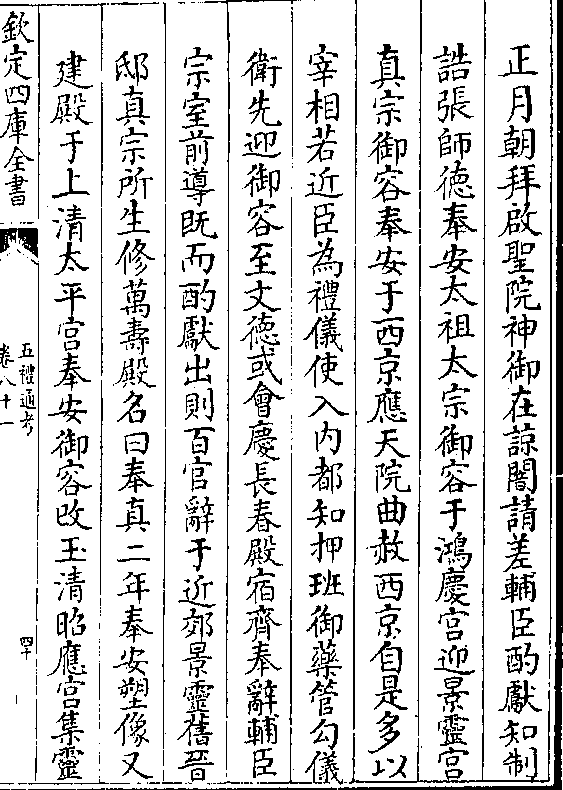 正月朝拜啟聖院神御在諒闇請差輔臣酌獻知制
誥張師德奉安太祖太宗御容于鴻慶宮迎景靈宮
真宗御容奉安于西京應天院曲赦西京自是多以
宰相若近臣為禮儀使入内都知押班御藥管勾儀
衛先迎御容至文德或會慶長春殿宿齊奉辭輔臣
宗室前導既而酌獻出則百官辭于近郊景靈舊晉
邸真宗所生修萬壽殿名曰奉真二年奉安塑像又
建殿于上清太平宮奉安御容改玉清昭應宮集靈
欽定四庫全書
五禮通考
卷八十一
四十